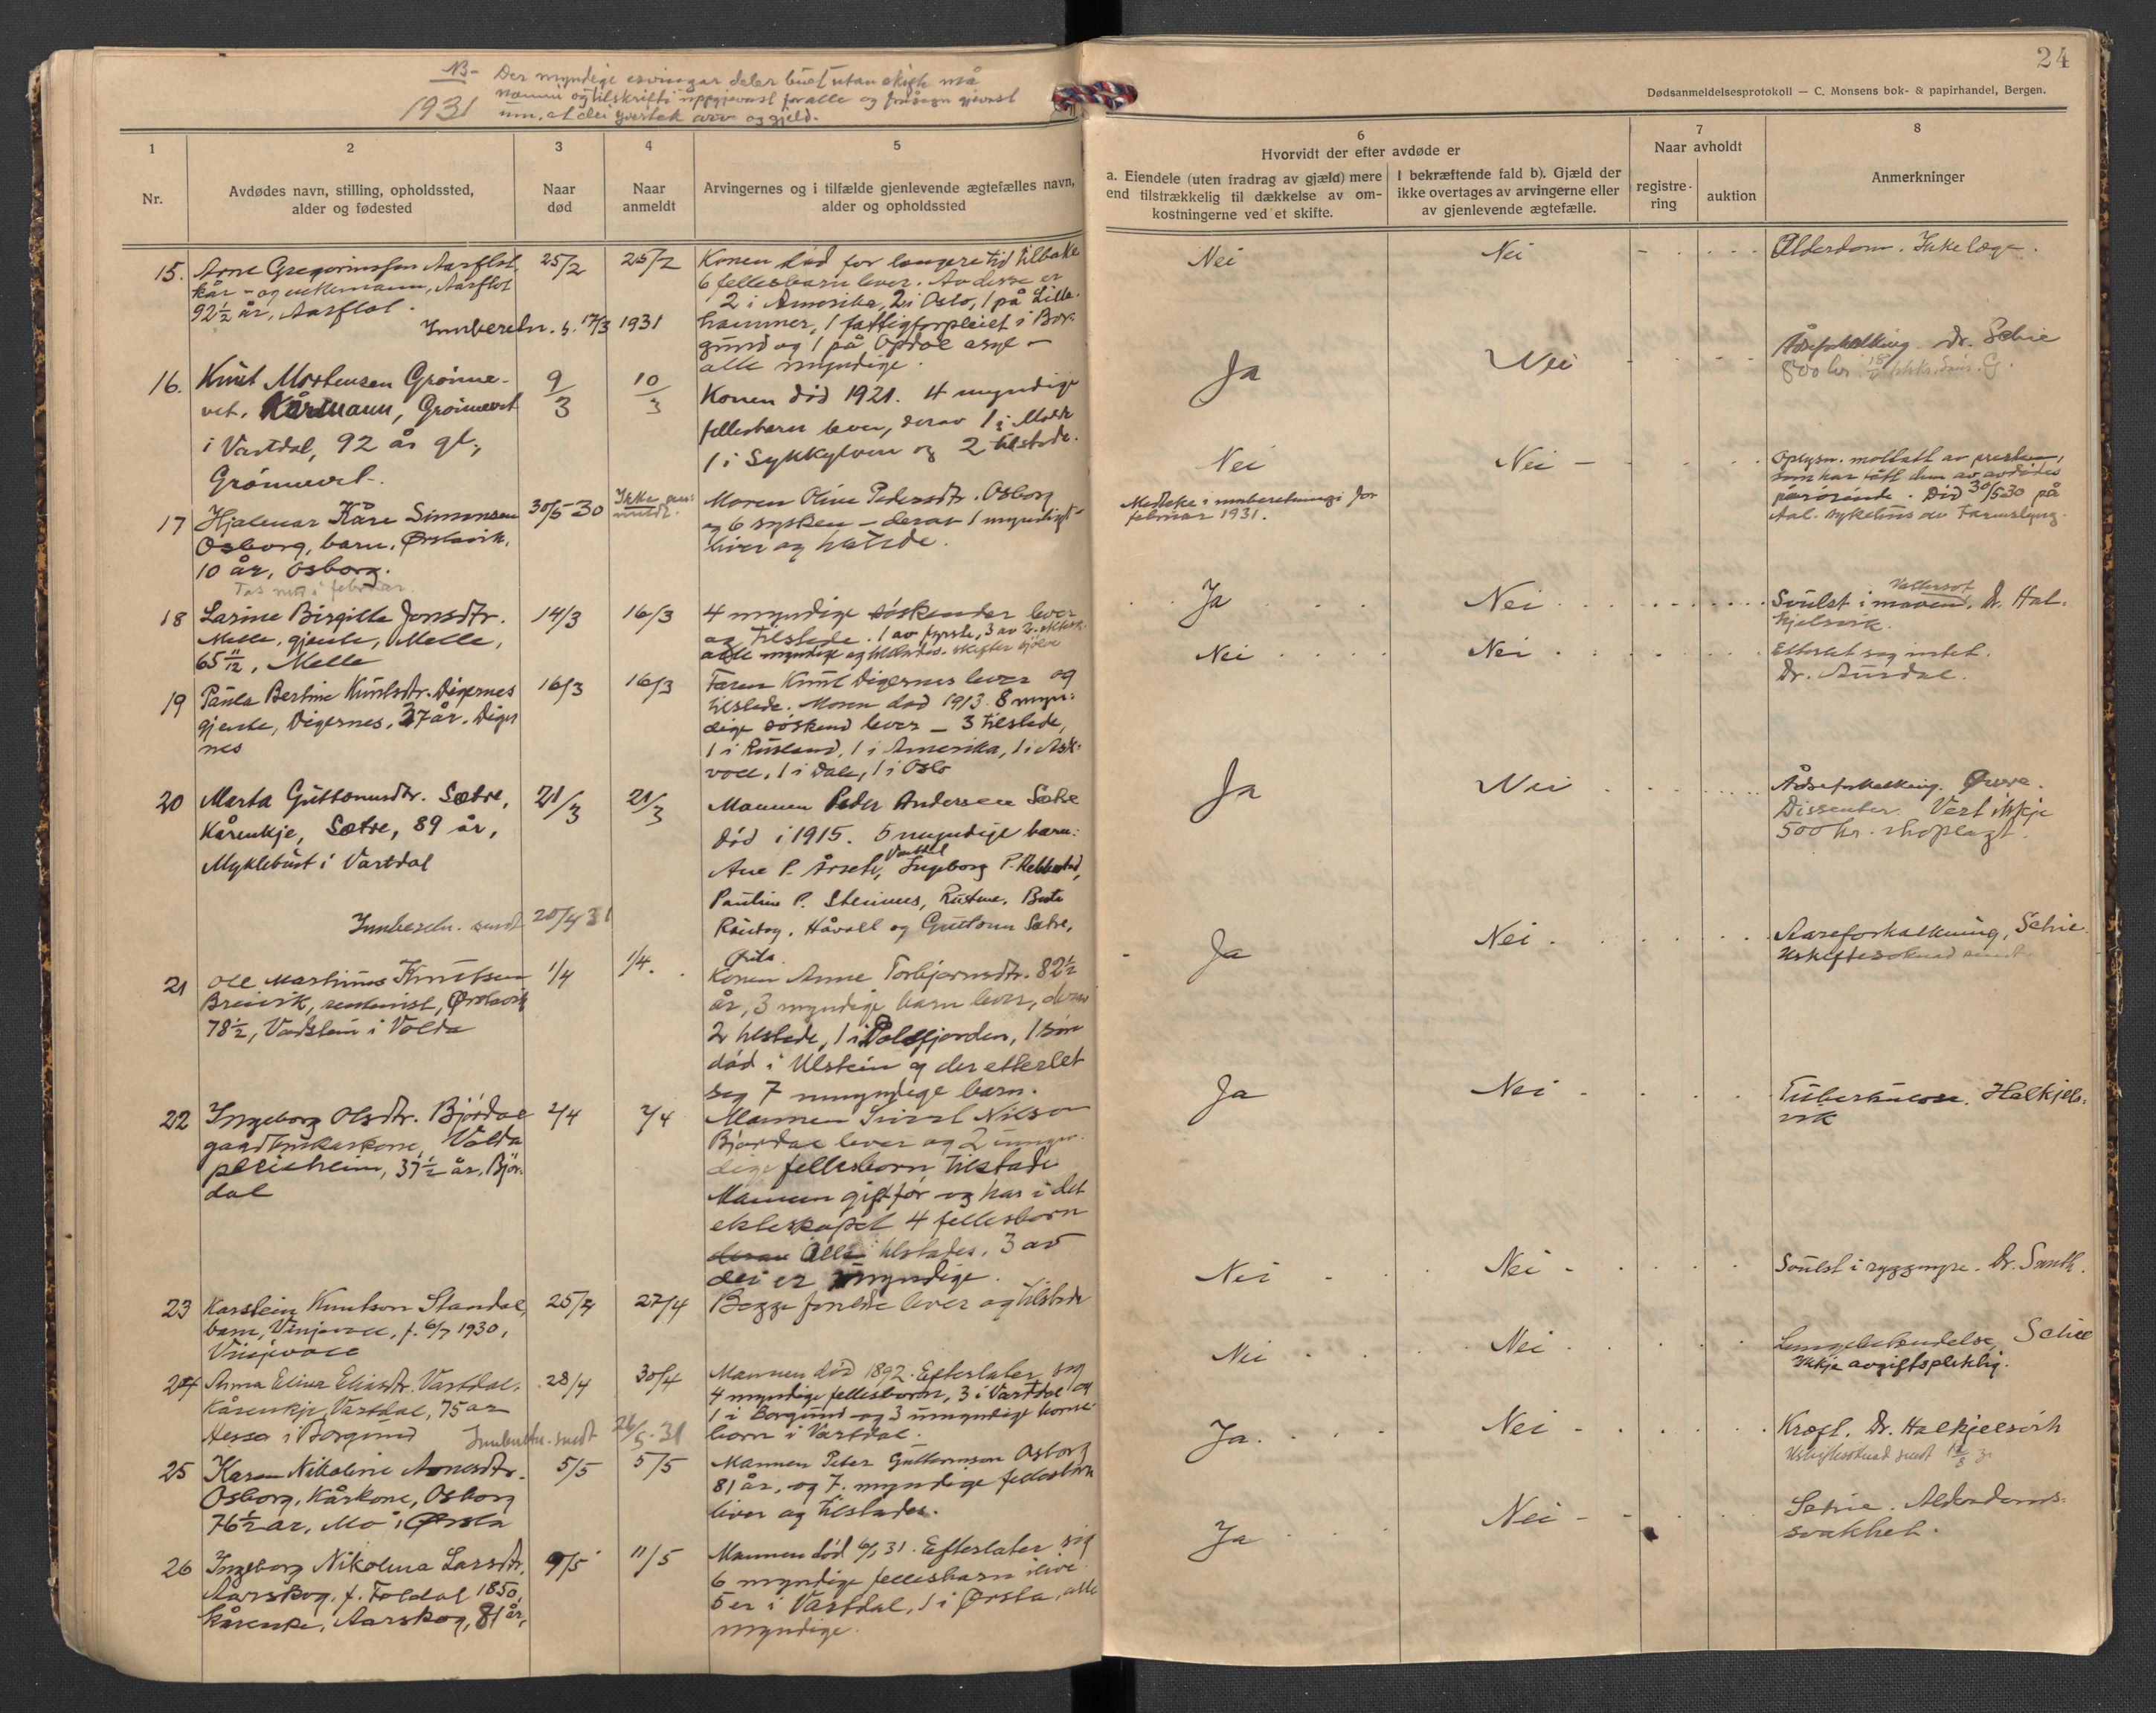 24
Dødsanmeldelsesprotokoll — C. Monsens bok- & papirhandel, Bergen.
NB- Der myndige arvingar deler buet utan skifte må
namni og tilskrifti uppgjevast for alle og
um. at dei yvertek arv og gjeld.
1931
1
2
3
4
5
6
7
8
Nr.
Avdødes navn, stilling, opholdssted,
alder og fødested
Naar
død
Naar
anmeldt
Arvingernes og i tilfælde gjenlevende ægtefælles navn,
alder og opholdssted
Hvorvidt der efter avdøde er
a. Eiendele (uten fradrag av gjæld) mere
end tilstrækkelig til dækkelse av om-
kostningerne ved et skifte.
I bekræftende fald b). Gjæld der
ikke overtages av arvingerne eller
av gjenlevende ægtefælle.
Naar avholdt
registre-
ring
auktion
Anmerkninger
15. Arne Gregoriussen Aarflot,
kår- og enkemann, Aarflot
92 1/2 år, Aarflot.
25/2
25/2
Konen død for længere tid tilbake
6 fellesbarn lever. Av disse er
2 i Amerika, 2 i Oslo, 1 på Lille-
hammer, 1 fattigforpleiet i Bor-
gund og 1 på Opdal asyl -
alle myndige.
Nei
Nei
Alderdom. Ikke læge.
Innberetn. s. 17/3 1931
16. Knut Mortensen Grønne-
vet, Kårmann, Grønnevet
i Vartdal, 92 år gl.,
Grønnevet.
9/3
10/3
Konen død 1921. 4 myndige
fellesbarn lever, derav 1 i Molde
1 i Sykkylven og 2 tilstede.
Ja
Nei
Åreforkalking. Dr. Schie
800 kr
17 Hjalmar Kåre Simonsen
Osborg, barn, Ørstavik,
10 år, Osborg.
Tas med i februar
30/5 30
Ikke an-
meldt.
Moren Oline Pedersdtr. Osborg
og 6 sysken - derav 1 myndigt -
liver og hatlede.
Nei
Nei -
Medteke i innberetningi for
februar 1931.
Oplysn. mottatt av presten,
som har fått dem av avdødes
pårørende. Død 30/5 30 på
Aal. sykehus av
18 Larine Birgitte Jonsdtr.
Melle, gjente, Melle,
65 11/12, Melle
14/3
16/3
4 myndige søskender lever
og tilstede. 1 av fyrste, 3 av 2. ektesk.
alle myndige og tilstades. skifter sjølv
Ja
Nei
Svulst i maven. Dr. Hal-
kjelsvik.
Vattersot
19 Paula Bertine Knutsdtr. Digernes
gjente, Digernes, 37 år. Diger
nes
16/3
16/3
Faren Knut Digernes lever og
tilstede. Moren død 1913. 8 myn-
dige søskend lever - 3 tilstede,
1 i Rusland, 1 i Amerika, 1 i Ask-
voll, 1 i Dale, 1 i Oslo
Nei
Nei
Etterlet seg intet.
Dr. Aurdal.
20 Marta Guttormsdtr. Sætre,
Kårenkje, Sætre, 89 år,
Myklebust i Vartdal
21/3
21/3
Mannen Peder Andersen Sætre
død i 1915. 5 myndige barn:
Ane P. Årseth, Vartdal, Ingeborg P. Klebbestad,
Pauline P. Steinnes, Rustene, Berte
Røiset, Håvoll og Guttorm Sætre,
Ja
Nei
Åreforkalking. Øvre.
Dissenter. Vert ikkje
500 kr. utoplagt.
Innberetn. sendt 20/4 31
21 Ole Martinus Knutsen
Breivik, rentenist, Ørstavik
78 1/2, Vadstein i Volda
1/4
1/4.
Konen Anne Torbjørnsdtr. 82 1/2
år, 3 myndige barn lever, derav
2 tilstede, 1 i Dalsfjorden, 1 søn
død i Ulstein og der etterlet
seg 7 umyndige barn.
Ja
Nei
Aareforkalkning, Schie.
Uskiftesøknad sendt
22 Ingeborg Olsdtr. Bjørdal
gaardbrukarkone, Volda
pleieheim, 37 1/2 år, Bjør-
dal
2/4
7/4
Mannen Sivert Nilsen
Bjørdal lever og 2 umyn-
dige fellesborn tilstade
Mannen gift før og har i det
ekteskapet 4 fellesborn
derav Alle tilstades. 3 av
dei er umyndige.
Ja
Nei
Tuberkulose. Halkjels-
vik
23 Karstein Knutson Standal,
barn, Vinjevoll, f. 6/7 1930,
Vinjevoll
25/4
27/4
Begge foreldre lever og tilstede
Nei
Nei
Svulst i ryggmyr. Dr. Smith.
24 Anna Elina Eliasdtr. Vartdal,
Kårenkje, Vartdal, 75 år
Hessa i Borgund
28/4
30/4
Mannen død 1892. Efterlater sig
4 myndige fellesborn, 3 i Vartdal og
1 i Borgund og 3 umyndige borne-
born i Vartdal.
Nei
Nei
Lungebetendelse, Schie
Ikkje avgiftspliktig.
Innberetn. sendt 26/5-31
25 Karen Nikoline Arnesdtr.
Osborg, Kårkone, Osborg
76 1/2 år, Mo i Ørsta
5/5
5/5
Mannen Peter Guttormson Osborg
81 år, og 7 myndige fellesborn
liver og tilstades.
Ja.
Nei
Kræft. Dr. Halkjelsvik
Uskiftesøknad sendt
26 Ingeborg Nikolina Larsdtr.
Aarskog, f. Foldal 1850,
kårenke, Aarskog, 81 år,
9/5
11/5
Mannen død 6/1 31. Efterlater sig
6 myndige fellesbarn ilive
5 er i Vartdal, 1 i Ørsta, alle
myndige.
Ja
Nei
Schie. Alderdoms-
svakhet.